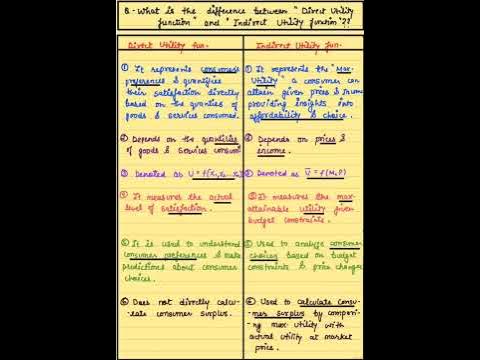 Q.- What is the difference between "Direct Utility
function" and "Indirect Utility function"??
Direct Utility fun-
① It represents consumers
preferences & quantifies
their satisfaction directly
based on the quanties of
goods & services consumed.
② Depends on the quantities
of goods & services consum
③ Denoted as U = f(x₁, x₂ ...
④ It measures the actual
level of satisfaction.
⑤ It is used to understand
consumer preferences & make
predictions about consumer
choices.
⑥ Does not directly calcu-
-late consumer surplus.
Indirect Utility fun-
① It represents the "Max-
Utility" a consumer can
attain given prices & income
providing insights into
affordability & choice.
② Depends on prices &
income.
③ Denoted as U = f(M,P)
④ It measures the max-
attainable utility given
budget constraints.
⑤ Used to analyze consumer
choices based on budget
constraints & price changes
⑥ Used to calculate consu-
mer surplus by compari-
ng max-utility with
actual utility at market
price.